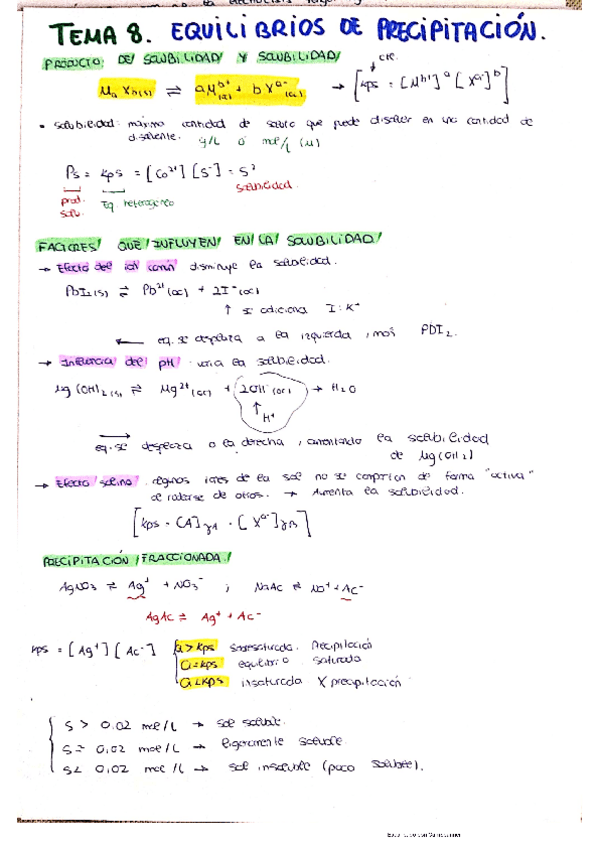 TEMA 8. EQUILIBRIOS DE PRECIPITACIÓN.
PRODUCTO DE SOLUBILIDAD Y SOLUBILIDAD
cte.
MaXb(s) ⇌ aM^b+(ac) + bX^a-(ac) → [Kps = [M^b+]^a [X^a-]^b]
• Solubilidad: máxima cantidad de soluto que puede disolver en una cantidad de
disolvente. g/L ó mol/L (M)
Ps = Kps = [Co²⁺][S⁻] = S²
prod. solub. Eq heterogéneo solubilidad
FACTORES QUE INFLUYEN EN LA SOLUBILIDAD
→ Efecto del ion común disminuye la solubilidad.
PbI₂(s) ⇌ Pb²⁺(ac) + 2I⁻(ac)
↑ se adiciona I⁻K⁺
← eq. se desplaza a la izquierda, más PDI₂.
→ Influencia del pH varia la solubilidad.
Mg(OH)₂(s) ⇌ Mg²⁺(ac) + 2OH⁻(ac) → H₂O
↑ H⁺
→ eq. se desplaza a la derecha, aumentando la solubilidad
de Mg(OH₂)
→ Efecto salino. algunos iones de la sal no se comportan de forma "activa"
al rodearse de otros. → Aumenta la solubilidad.
[Kps = CA]γA · [X^a-]γB]
PRECIPITACIÓN FRACCIONADA
AgNO₃ ⇌ Ag⁺ + NO₃⁻ ; NaAc ⇌ Na⁺ + Ac⁻
AgAc ⇌ Ag⁺ + Ac⁻
Kps = [Ag⁺][Ac⁻] Q > Kps sobresaturada. Precipitación
Q = Kps equilibrio saturada
Q < Kps insaturada X precipitación
S > 0,02 mol/L → sal soluble.
S = 0,02 mol/L → ligeramente soluble.
S < 0,02 mol/L → sal insoluble (poco soluble).